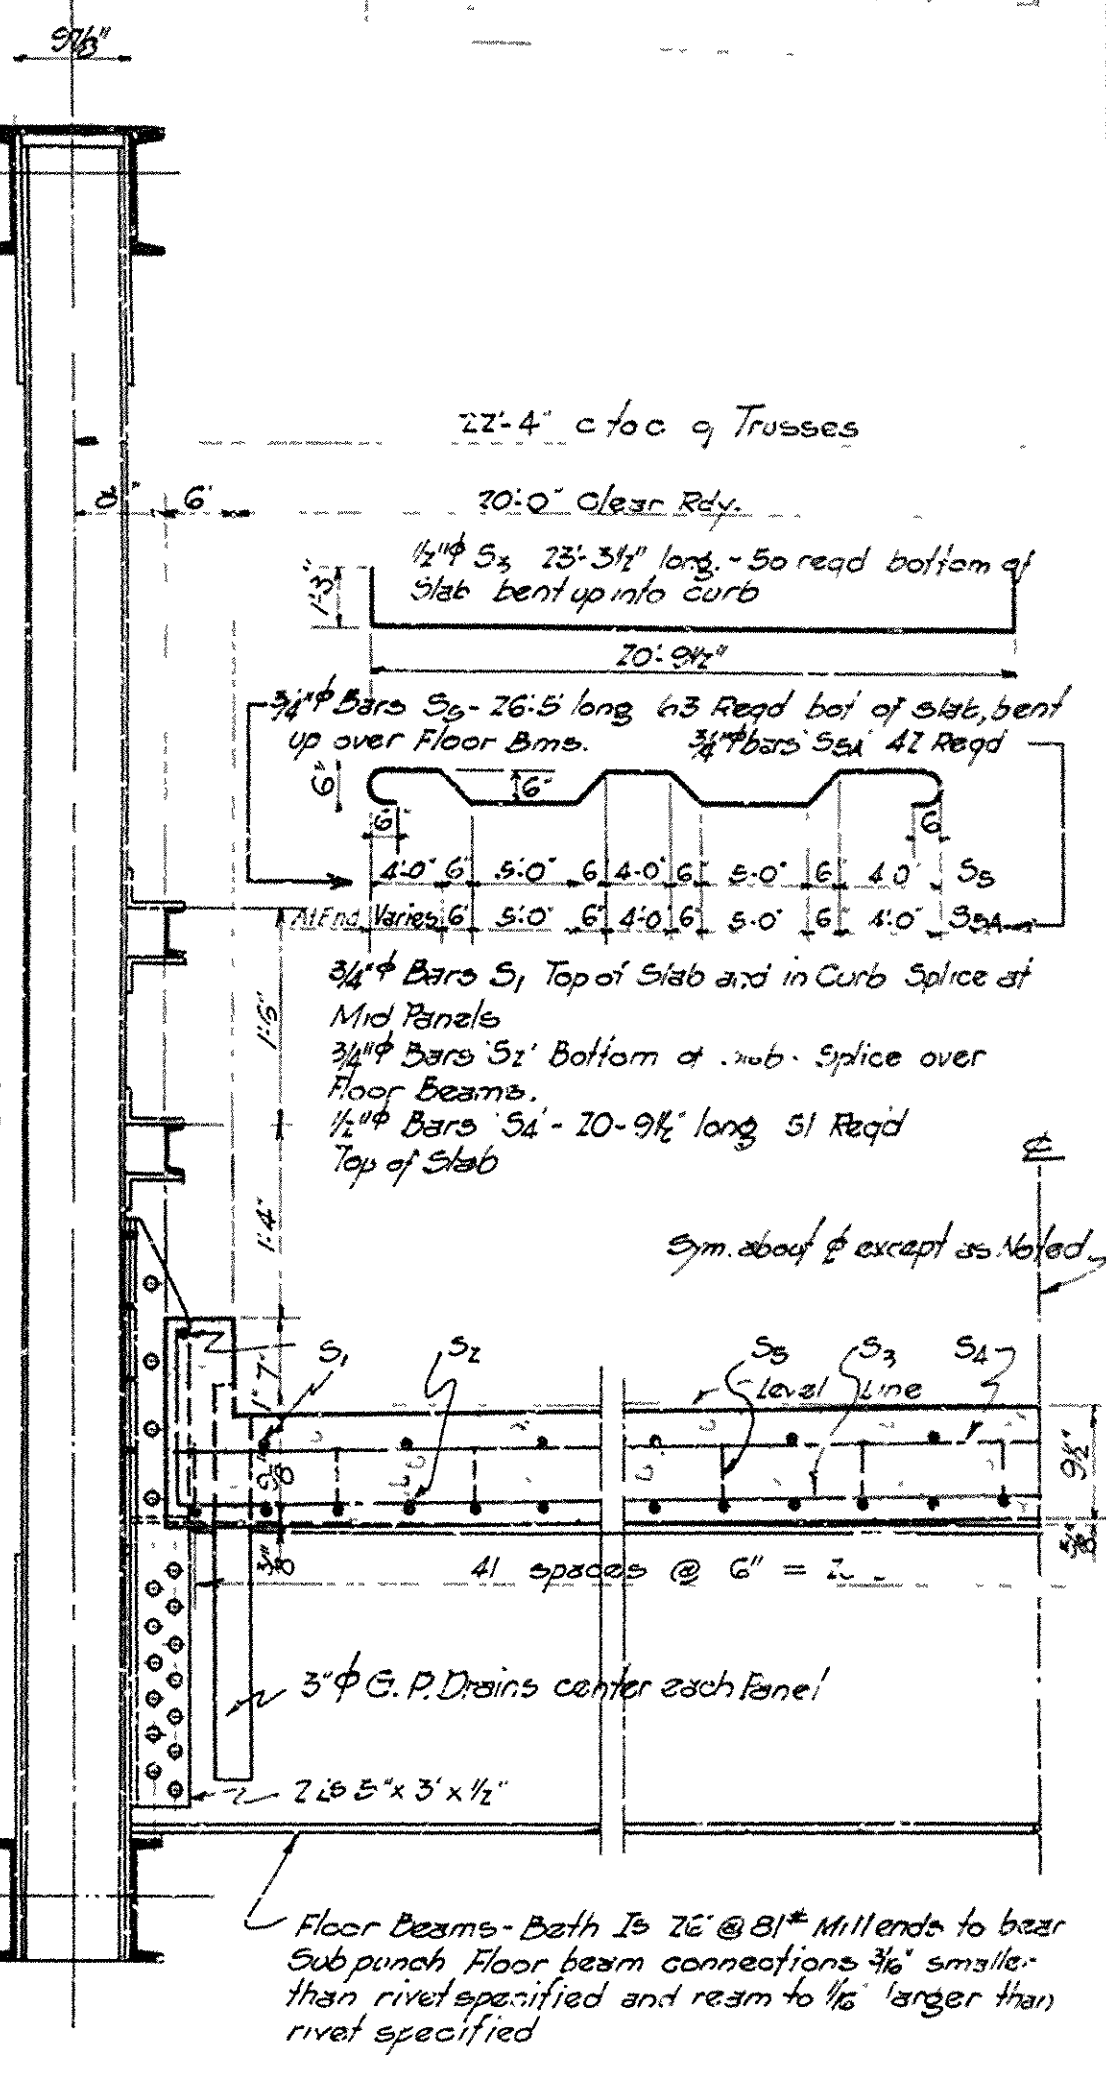 22'-4" c to c of Trusses
6"
20'-0" Clear Rdy.
1/2"ϕ S3 23'-3 1/2" long. - 50 reqd bottom of
Slab bent up into curb
1'-3"
20'-9 1/2"
3/4"ϕ Bars S5 - 26'-5 long 63 Reqd bot of slab, bent
up over Floor Bms.
3/4"ϕ bars S5A 42 Reqd
6"
6"
6"
6
4'-0" 6" 5'-0" 6" 4'-0" 6" 5'-0" 6" 4'-0" S5
At End Varies 6" 5'-0" 6" 4'-0 6" 5'-0" 6" 4'-0" S5A
3/4"ϕ Bars S1 Top of Slab and in Curb Splice at
Mid Panels
3/4"ϕ Bars 'S2' Bottom of - Splice over
Floor Beams.
1/2"ϕ Bars 'S4' - 20-9 1/2" long 51 Reqd
Top of Slab
1'-6"
1'-4"
℄
Sym. about ℄ except as Noted
S1
S2
S5
S3
S4
Level Line
9 1/2"
41 spaces @ 6" =
3"ϕ G. P. Drains center each Panel
2 Ls 5" x 3" x 1/2"
Floor Beams - Beth Is 26" @ 81# Mill ends to bear
Sub punch Floor beam connections 3/16" smaller
than rivet specified and ream to 1/16" larger than
rivet specified